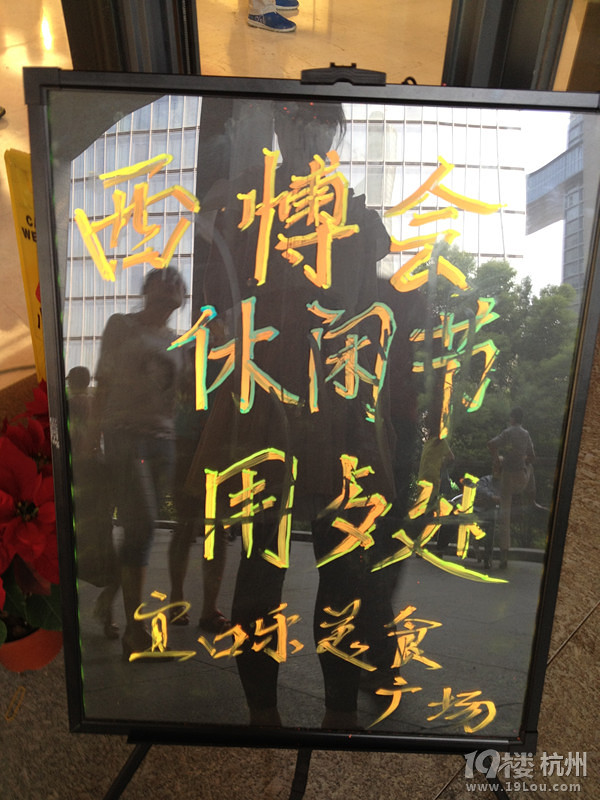 西博会
休闲节
用歺处
宜口乐美食
广场
19楼 杭州
www.19Lou.com